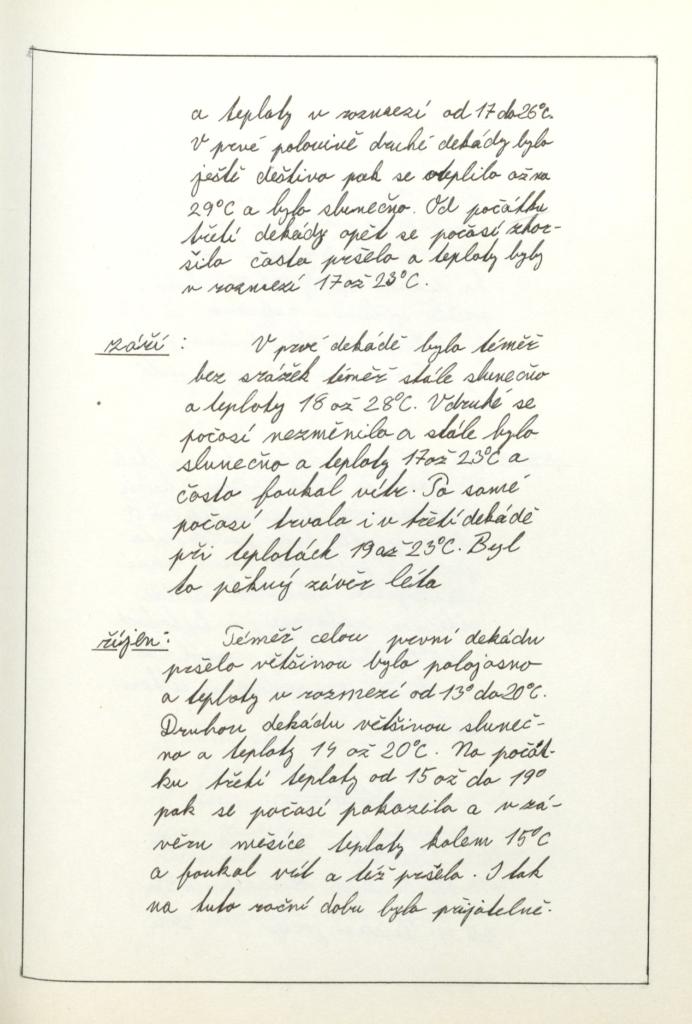 a teploty v rozmezí od 17 do 26°C.
V prvé polovině druhé dekády bylo
ještě deštivo pak se oteplilo až na
29°C a bylo slunečno. Od počátku
třetí dekády opět se počasí zhor-
šilo často pršelo a teploty byly
v rozmezí 17 až 23°C.
září : V prvé dekádě bylo téměř
bez srážek téměř stále slunečno
a teploty 18 až 28°C. V druhé se
počasí nezměnilo a stále bylo
slunečno a teploty 17 až 23°C a
často foukal vítr. To samé
počasí trvalo i v třetí dekádě
při teplotách 19 až 23°C. Byl
to pěkný závěr léta
říjen: Téměř celou první dekádu
pršelo většinou bylo polojasno
a teploty v rozmezí od 13° do 20°C.
Druhou dekádu většinou sluneč-
no a teploty 14 až 20°C. Na počát-
ku třetí teploty od 15 až do 19°
pak se počasí pokazilo a v zá-
věru měsíce teploty kolem 15°C
a foukal vítr a též pršelo. I tak
na tuto roční dobu bylo přijatelné.